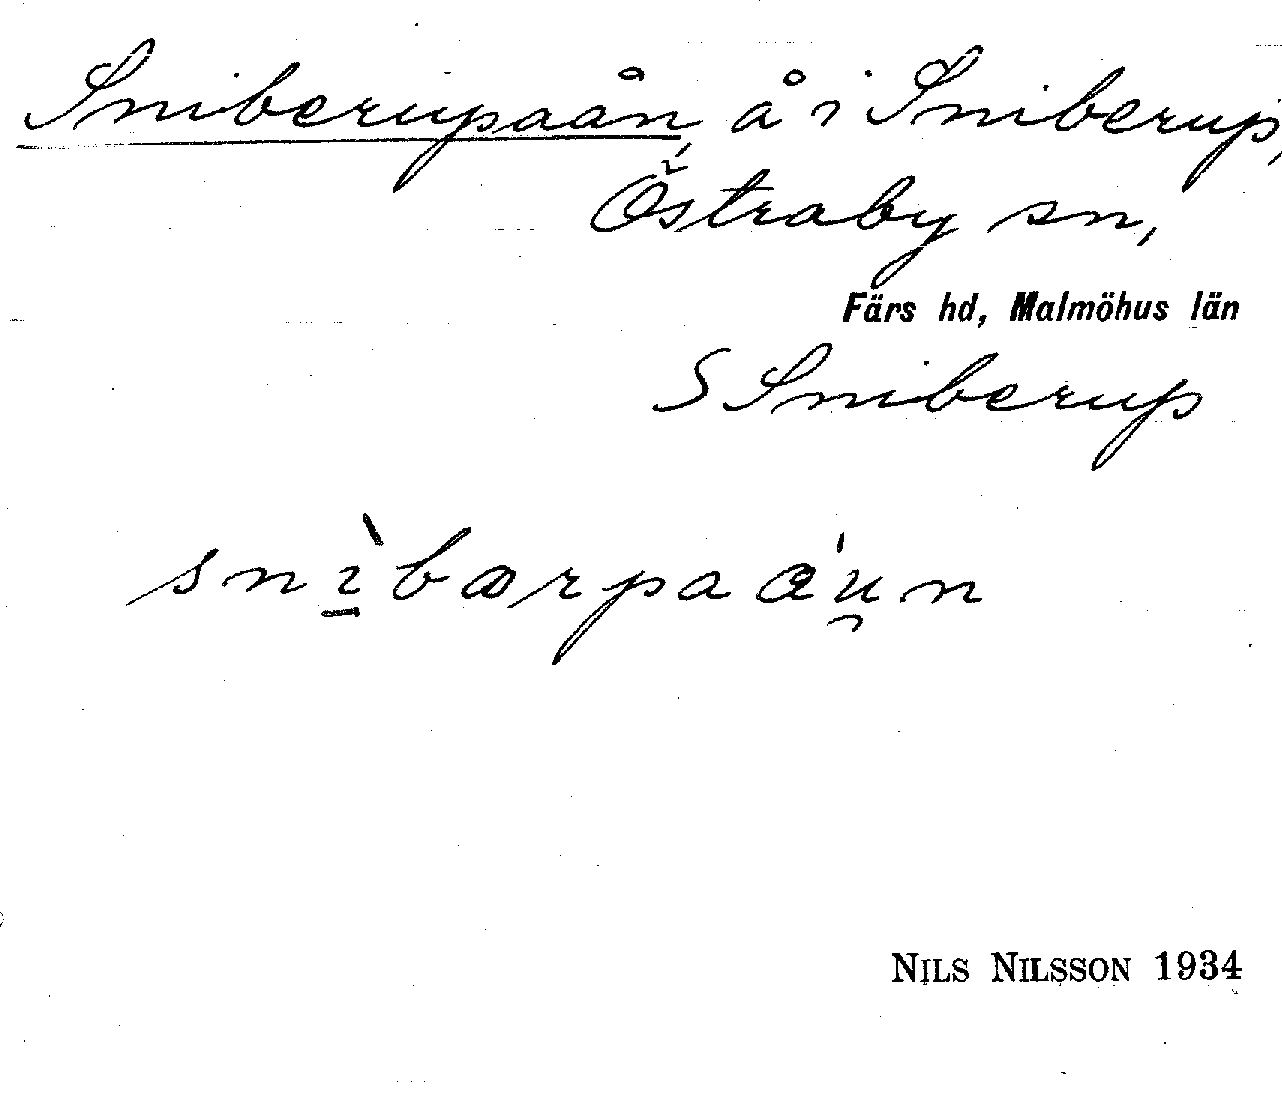 Sniberupaån, å i Sniberup,
Östraby sn,
Färs hd, Malmöhus län
S Sniberup
snì̠bærpaæ'u̯n
NILS NILSSON 1934